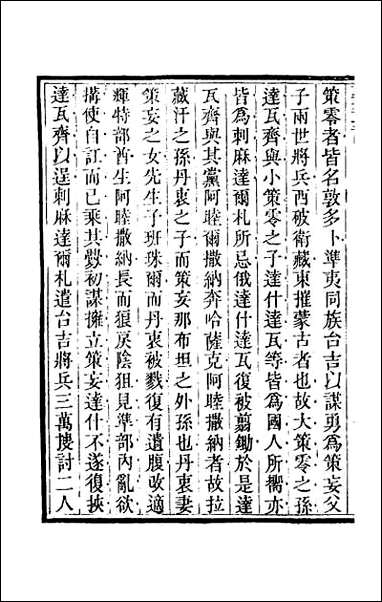 策零者皆名敦多卜準夷同族台吉以謀勇爲策妄父
子兩世將兵西破衛藏東摧蒙古者也故大策零之孫
達瓦齊與小策零之子達什達瓦等皆爲國人所嚮亦
皆爲刺麻達爾札所忌俄達什達瓦復被翦鋤於是達
瓦齊與其黨阿睦爾撒納奔哈薩克阿睦撒納者故拉
藏汗之孫丹衷之子而策妄那布坦之外孫也丹衷妻
策妄之女先生子班珠爾而丹衷被戮復有遺腹改適
輝特部酋生阿睦撒納長而狼戾陰狙見準部內亂欲
搆使自訌而己乘其釁初謀擁立策妄達什不遂復挾
達瓦齊以逞刺麻達爾札遣台吉將兵三萬搜討二人